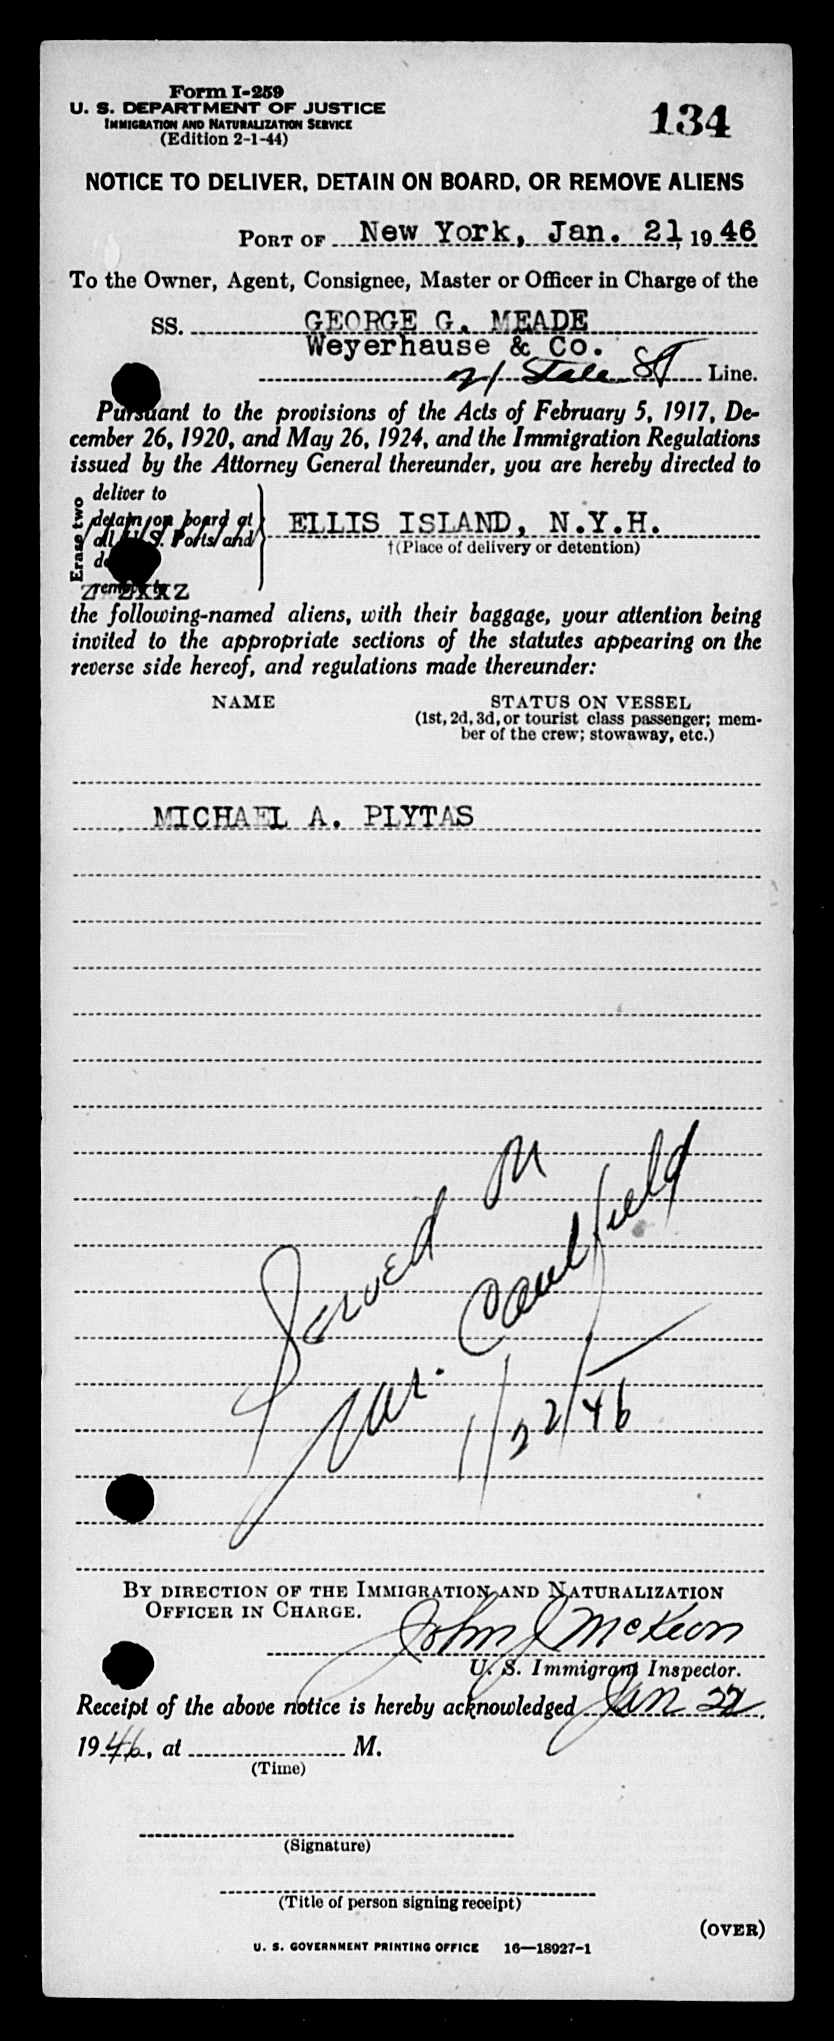 Form I-259
U. S. DEPARTMENT OF JUSTICE
IMMIGRATION AND NATURALIZATION SERVICE
(Edition 2-1-44)
134
NOTICE TO DELIVER, DETAIN ON BOARD, OR REMOVE ALIENS
PORT OF New York, Jan. 21, 1946
To the Owner, Agent, Consignee, Master or Officer in Charge of the
SS. GEORGE G. MEADE
Weyerhause & Co.
21 State St Line.
Pursuant to the provisions of the Acts of February 5, 1917, De-
cember 26, 1920, and May 26, 1924, and the Immigration Regulations
issued by the Attorney General thereunder, you are hereby directed to
Erase two
deliver to
detain on board at
all U.S. Ports and
remove to
ELLIS ISLAND, N.Y.H.
†(Place of delivery or detention)
the following-named aliens, with their baggage, your attention being
invited to the appropriate sections of the statutes appearing on the
reverse side hereof, and regulations made thereunder:
NAME
STATUS ON VESSEL
(1st, 2d, 3d, or tourist class passenger; mem-
ber of the crew; stowaway, etc.)
MICHAEL A. PLYTAS
Served on
Mr. Caulfield
1/22/46
BY DIRECTION OF THE IMMIGRATION AND NATURALIZATION
OFFICER IN CHARGE.
John J McKeon
U. S. Immigrant Inspector.
Receipt of the above notice is hereby acknowledged Jan 22,
1946, at M.
(Time)
(Signature)
(Title of person signing receipt)
(OVER)
U. S. GOVERNMENT PRINTING OFFICE 16—18927-1